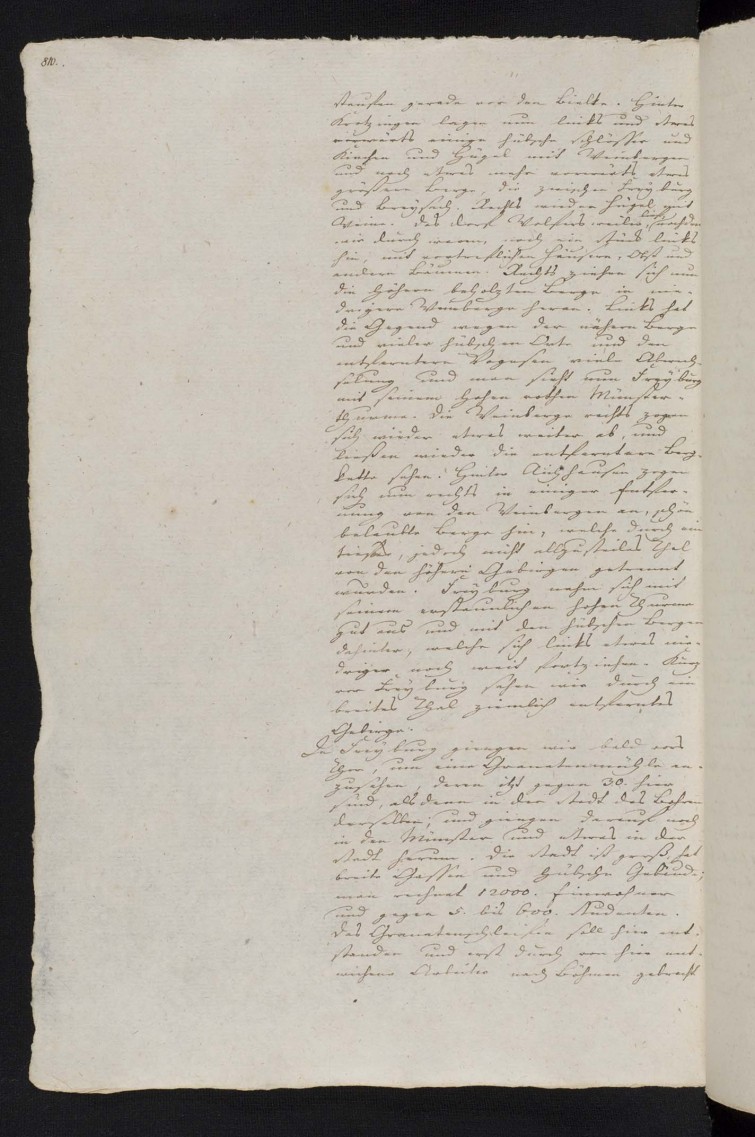 810.
gerade vor dem Hinter
Krotzingen lagen nun links und etwas
vorwärts einige hübsche Schlösser und
Kirchen und Hügel mit Weinbergen
und noch etwas mehr vorwärts etwas
größere Berge, die zwischen Freyburg
und Breysach. Rechts wieder Hügel mit
Weine. Das Dorf Wolfersweiler,
wir durch waren, noch ein Stück links
hin, mit vortreflichen Häusern, Obst und
andern Bäumen. Rechts ziehen sich nun
die höhern beholzten Berge in nie-
drigere Weinberge heran. Links hat
die Gegend wegen der nähern Berge
und vieler hübschen Orte und den
entferntern Vogesen viele Abwech-
selung und man sieht nun Freyburg
mit seinem hohen rothen Münster-
thurme. Die Weinberge rechts zogen
sich wieder etwas weiter ab, und
ließen wieder die entferntere Berg-
kette sehen. Hinter zogen
sich nun rechts in einiger Entfer-
nung von den Weinbergen an, schön
belaubte Berge hin, welche durch ein
tiefes, jedoch nicht allzusteiles Thal
von den höhern Gebirgen getrennt
wurden. Freyburg nahm sich mit
seinem erstaunlichen hohen Thurme
gut aus und mit den hübschen Bergen
dahinter, welche sich links etwas nie-
driger noch weit fortziehen. Kurz
vor Freyburg sahen wir durch ein
breites Thal ziemlich entferntes
Gebirge.
In Freyburg giengen wir bald vors
Thor, um eine Granatenmühle an-
zusehen, deren itzt gegen 30. hier
sind, alsdenn in der Stadt das Bohren
derselben, und giengen darauf noch
in den Münster und etwas in der
Stadt herum. Die Stadt ist groß, hat
breite Gassen und hübsche Gebäude;
man rechnet 12000. Einwohner
und gegen 5. bis 600. Studenten.
Das Granatenschleifen soll hier ent-
standen und erst durch von hier ent-
wichene Arbeiter nach Böhmen gebracht